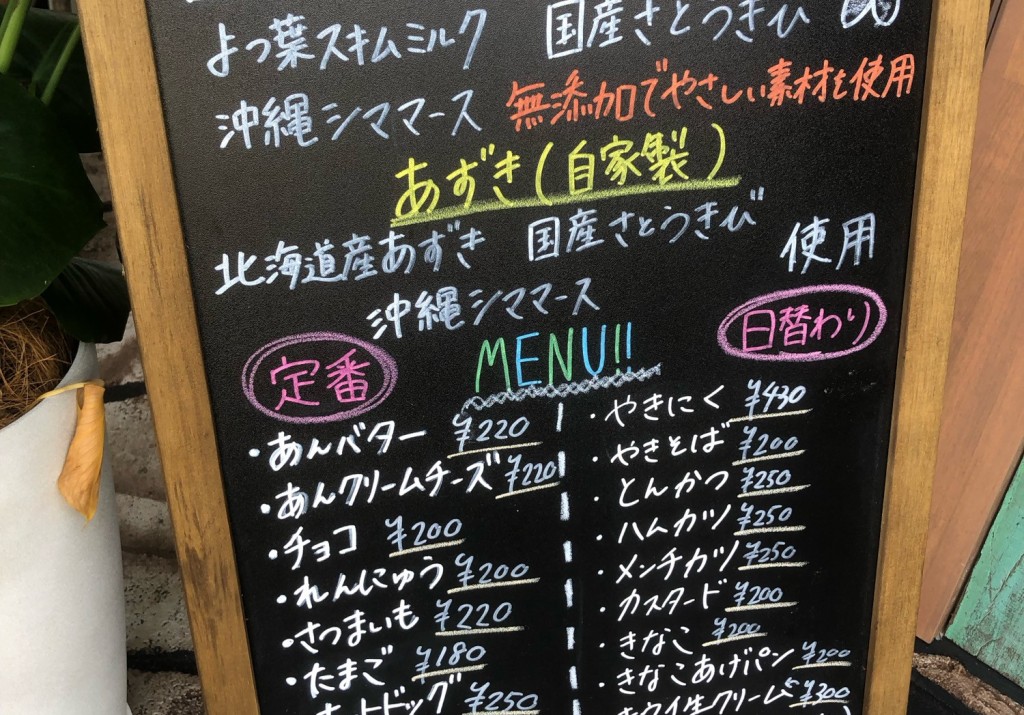 よつ葉スキムミルク 国産さとうきび
沖縄シママース 無添加でやさしい素材を使用
あずき(自家製)
北海道産あずき 国産さとうきび 使用
沖縄シママース
定番 MENU!! 日替わり
・あんバター ¥220
・あんクリームチーズ ¥220
・チョコ ¥200
・れんにゅう ¥200
・さつまいも ¥220
・たまご ¥180
ットドッグ ¥250
・やきにく ¥430
・やきそば ¥200
・とんかつ ¥250
・ハムカツ ¥250
・メンチカツ ¥250
・カスタード ¥200
・きなこ ¥200
・きなこあげパン ¥200
生クリーム ¥300